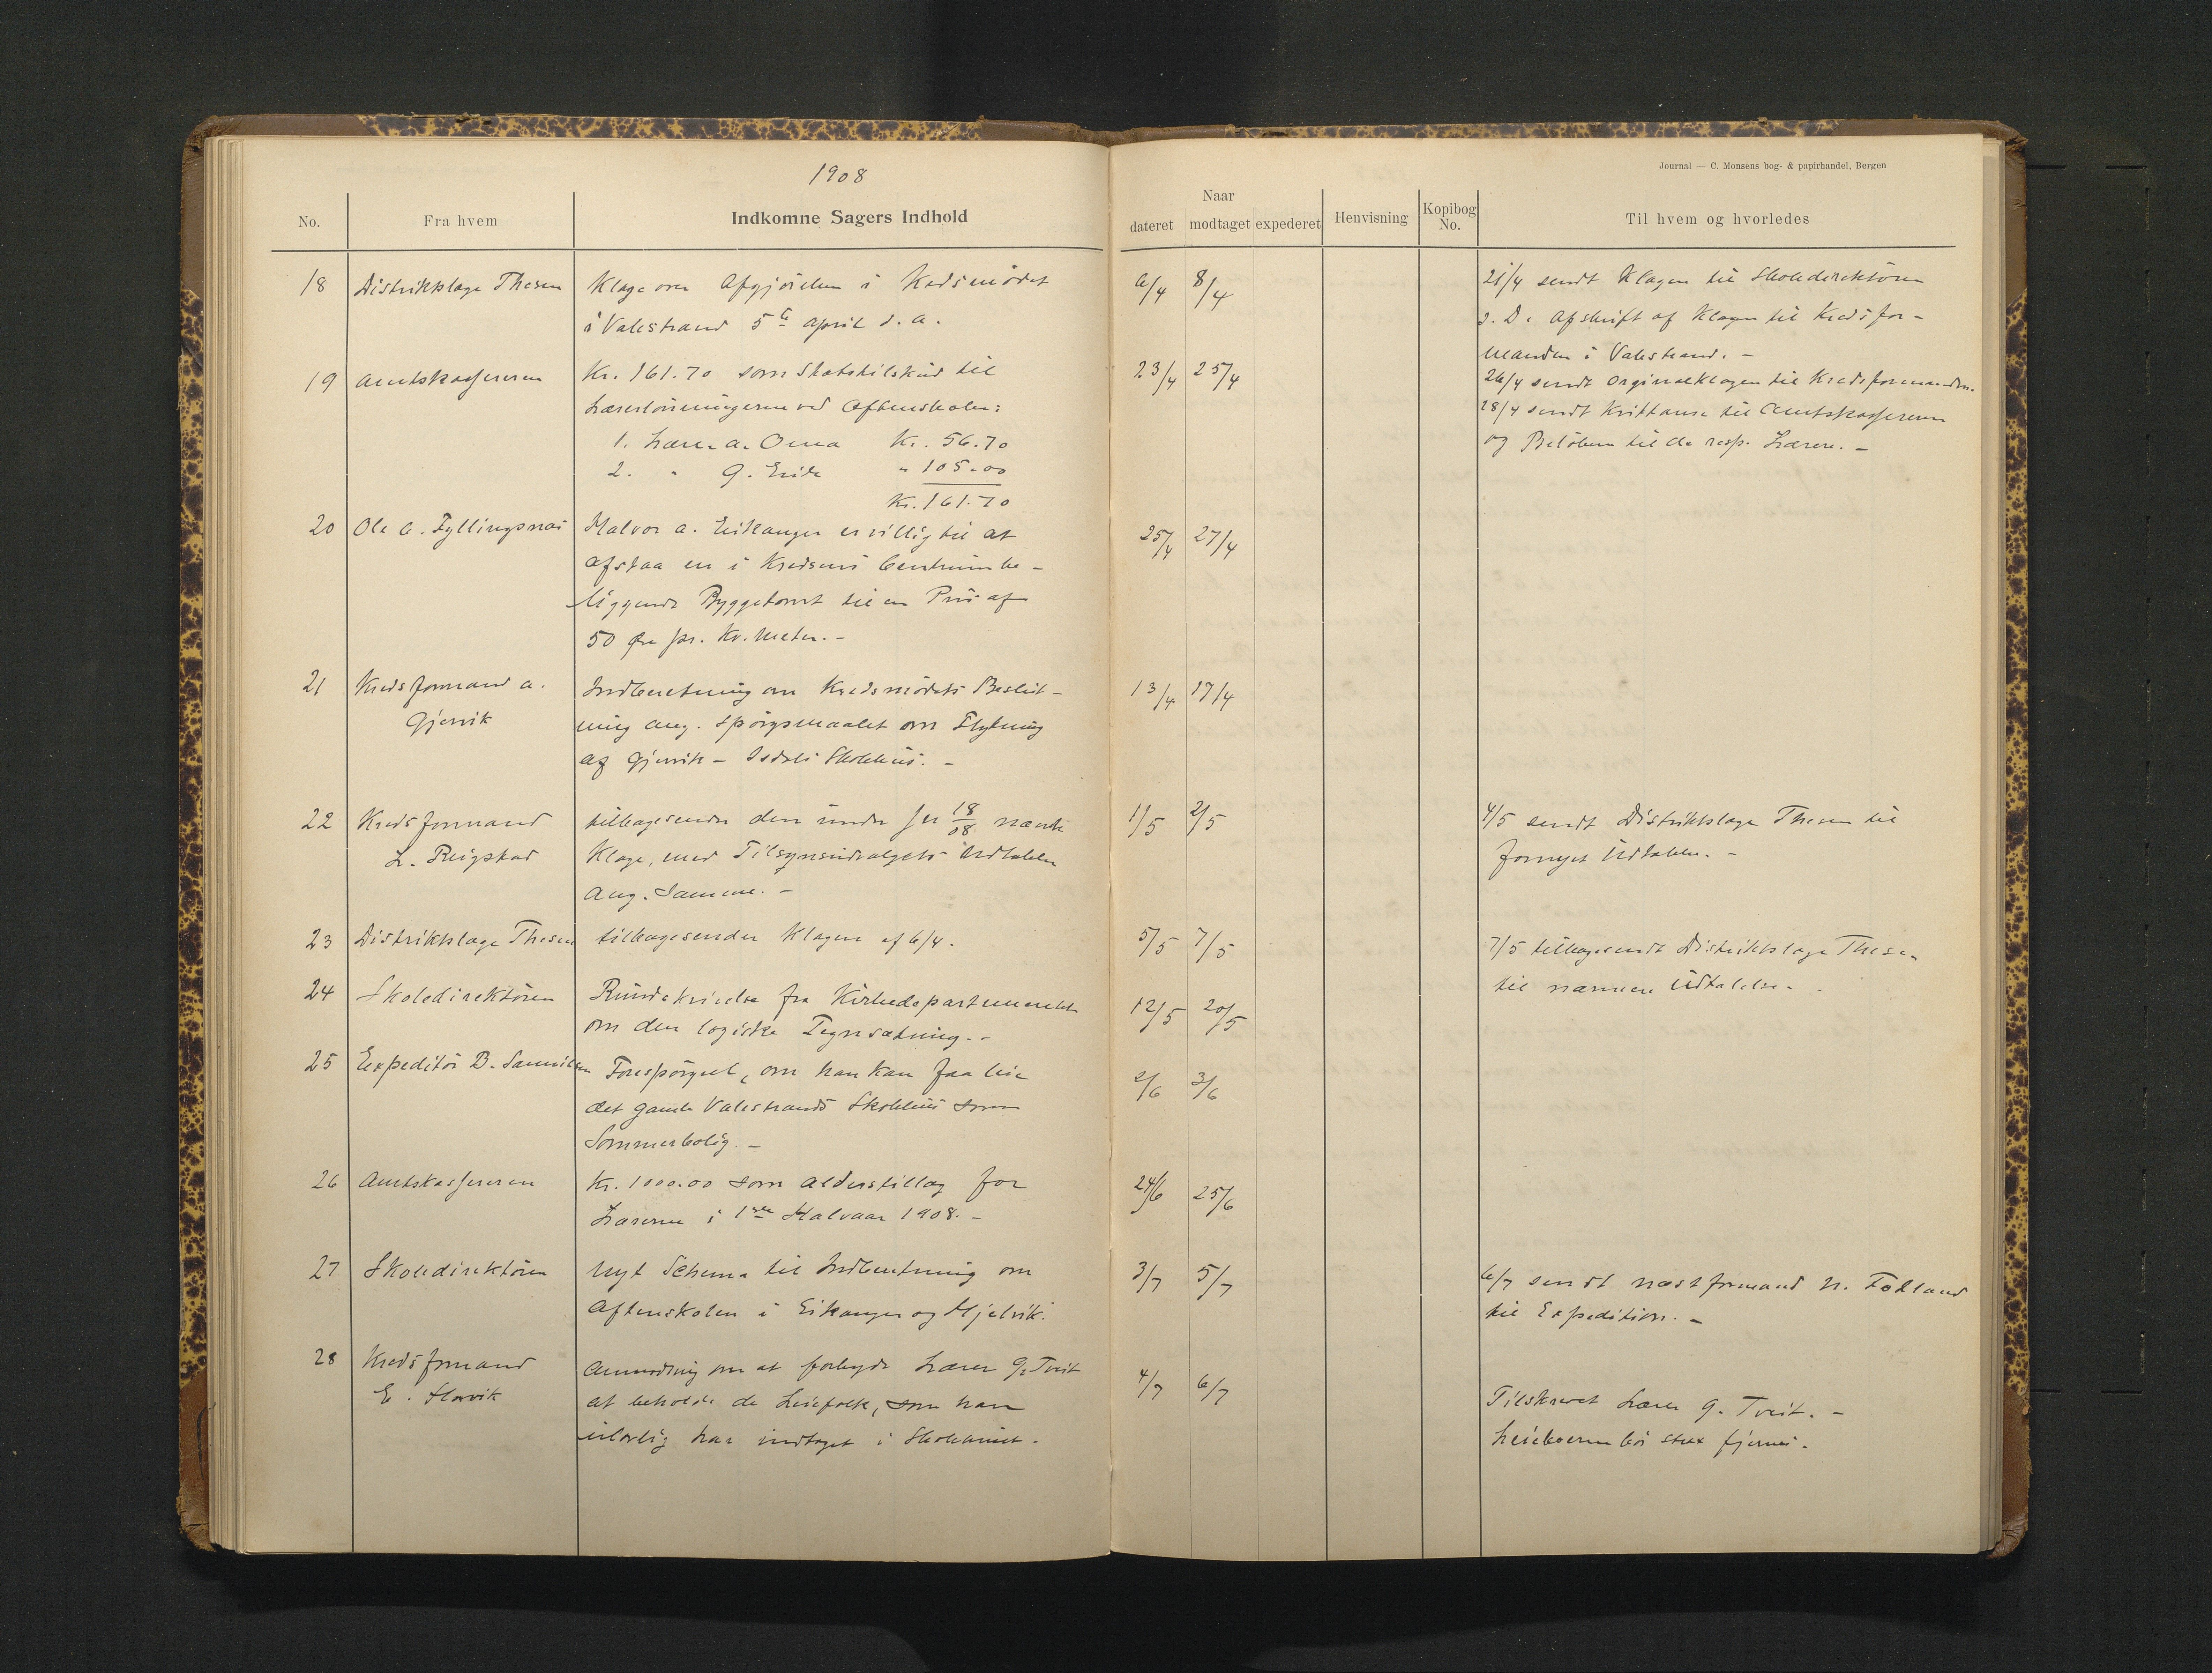 1908
Journal — C. Monsens bog- & papirhandel, Bergen
No. Fra hvem Indkomne Sagers Indhold
Naar
dateret modtaget expederet Henvisning Kopibog No. Til hvem og hvorledes
18 Distriktslæge Thesen Klage over Afgjörelsen i Kredsmödet
i Valestrand 5te April d. a.
6/4 8/4
21/4 sendt Klagen til Skoledirektören
s. D. Afskrift af Klagen til Kredsfor-
manden i Valestrand. -
19 Amtskassereren Kr. 161.70 som Statstilskud til
Lærerlönningerne ved Aftenskolen:
1. Lærer A. Oma Kr. 56.70
2. " G. " 105.00
Kr. 161.70
23/4 25/4
26/4 sendt Orginalklagen til Kredsformanden.
28/4 sendt Kvittanse til Amtskassereren
og Belöbene til de resp. Lærere. -
20 Ole A. Fyllingsnæs Halvor A. Eikanger er villig til at
afstaa en i Kredsens Centrum be-
liggende Byggetomt til en Pris af
50 Öre pr. Kv. Meter. -
25/4 27/4
21 Kredsformand A.
Gjervik
Indberetning om Kredsmödets Beslut-
ning ang. Spörgsmaalet om Flytning
af Gjervik - Isdals Skolehus. -
13/4 17/4
22 Kredsformand
L. Reigstad
tilbagesender den under Jr 18/08 nævnte
Klage, med Tilsynsudvalgets Udtalelse
ang. Samme. -
1/5 2/5
4/5 sendt Distriktslæge Thesen til
fornyet Udtalelse. -
23 Distriktslæge Thesen tilbagesender Klagen af 6/4.
5/5 7/5
7/5 tilbagesendt Distriktslæge Thesen
til nærmere Udtalelse. -
24 Skoledirektören Rundskrivelse fra Kirkedepartementet
om den logiske Tegnsætning. -
12/5 20/5
25 Expeditör B. Samuelsen Forespörgsel, om han kan faa leie
det gamle Valestrands Skolehus som
Sommerbolig. -
2/6 3/6
26 Amtskassereren Kr. 1000.00 som Alderstillæg for
Lærerne i 1ste Halvaar 1908. -
24/6 25/6
27 Skoledirektören Nyt Schema til Indberetning om
Aftenskolen i Eikanger og Hjelvik.
3/7 5/7
6/7 sendt næstformand N. Fotland
til Expedition. -
28 Kredsformand
E. Horvik
Anmodning om at forbyde Lærer G. Tveit
at beholde de Leiefolk, som han
ulovlig har indtaget i Skolehuset.
4/7 6/7
Tilskrevet Lærer G. Tveit. -
Leieboerne bör strax fjernes.